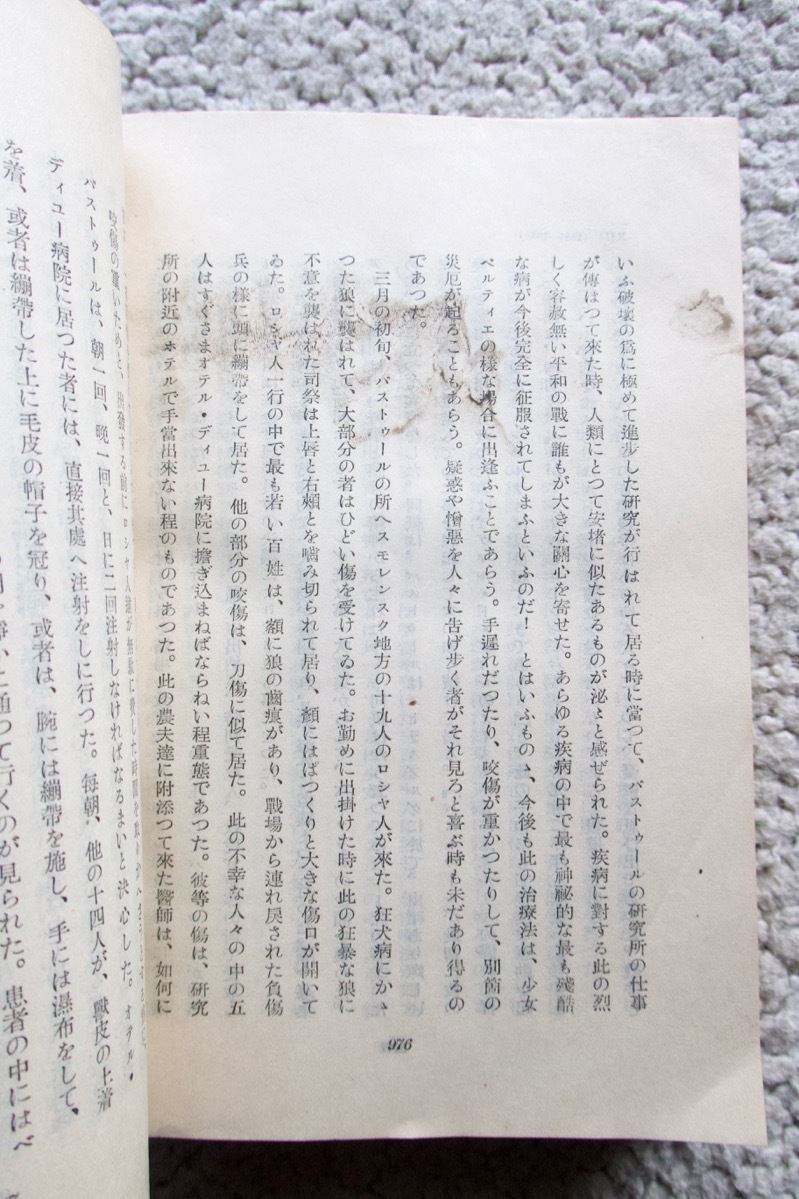 いふ破壞の爲に極めて進步した研究が行はれて居る時に當つて、パストゥールの研究所の仕事
が傳はつて來た時、人類にとつて安堵に似たあるものが泌〻と感ぜられた。疾病に對する此の烈
しく容赦無い平和の戰に誰もが大きな關心を寄せた。あらゆる疾病の中で最も神祕的な最も殘酷
な病が今後完全に征服されてしまふといふのだ！とはいふものゝ、今後も此の治療法は、少女
ペルティエの樣な場合に出逢ふことであらう。手遲れだつたり、咬傷が重かつたりして、別箇の
災厄が起ることもあらう。疑惑や憎惡を人々に吿げ步く者がそれ見ろと喜ぶ時も未だあり得るの
であつた。
三月の初旬、パストゥールの所へスモレンスク地方の十九人のロシヤ人が來た。狂犬病にかゝ
つた狼に襲はれて、大部分の者はひどい傷を受けてゐた。お勤めに出掛けた時に此の狂暴な狼に
不意を襲はれた司祭は上唇と右頰とを嚙み切られて居り、顏にはぱつくりと大きな傷口が開いて
ゐた。ロシヤ人一行の中で最も若い百姓は、額に狼の齒痕があり、戰場から連れ戾された負傷
兵の樣に頭に繃帶をして居た。他の部分の咬傷は、刀傷に似て居た。此の不幸な人々の中の五
人はすぐさまオテル・ディユー病院に擔ぎ込まねばならねい程重態であつた。彼等の傷は、硏究
所の附近のホテルで手當出來ない程のものであつた。此の農夫達に附添つて來た醫師は、如何に
976
咬傷の重いためと、出發する前にロシヤ人達が無駄に費した時間を
パストゥールは、朝一回、晚一回と、日に二回注射しなければなるまいと決心した。オテル・
ディユー病院に居つた者には、直接其處へ注射をしに行つた。每朝、他の十四人が、獸皮の上着
を着、或者は繃帶した上に毛皮の帽子を冠り、或者は、腕には繃帶を施し、手には瀑布をして、
通つて行くのが見られた。患者の中にはペ